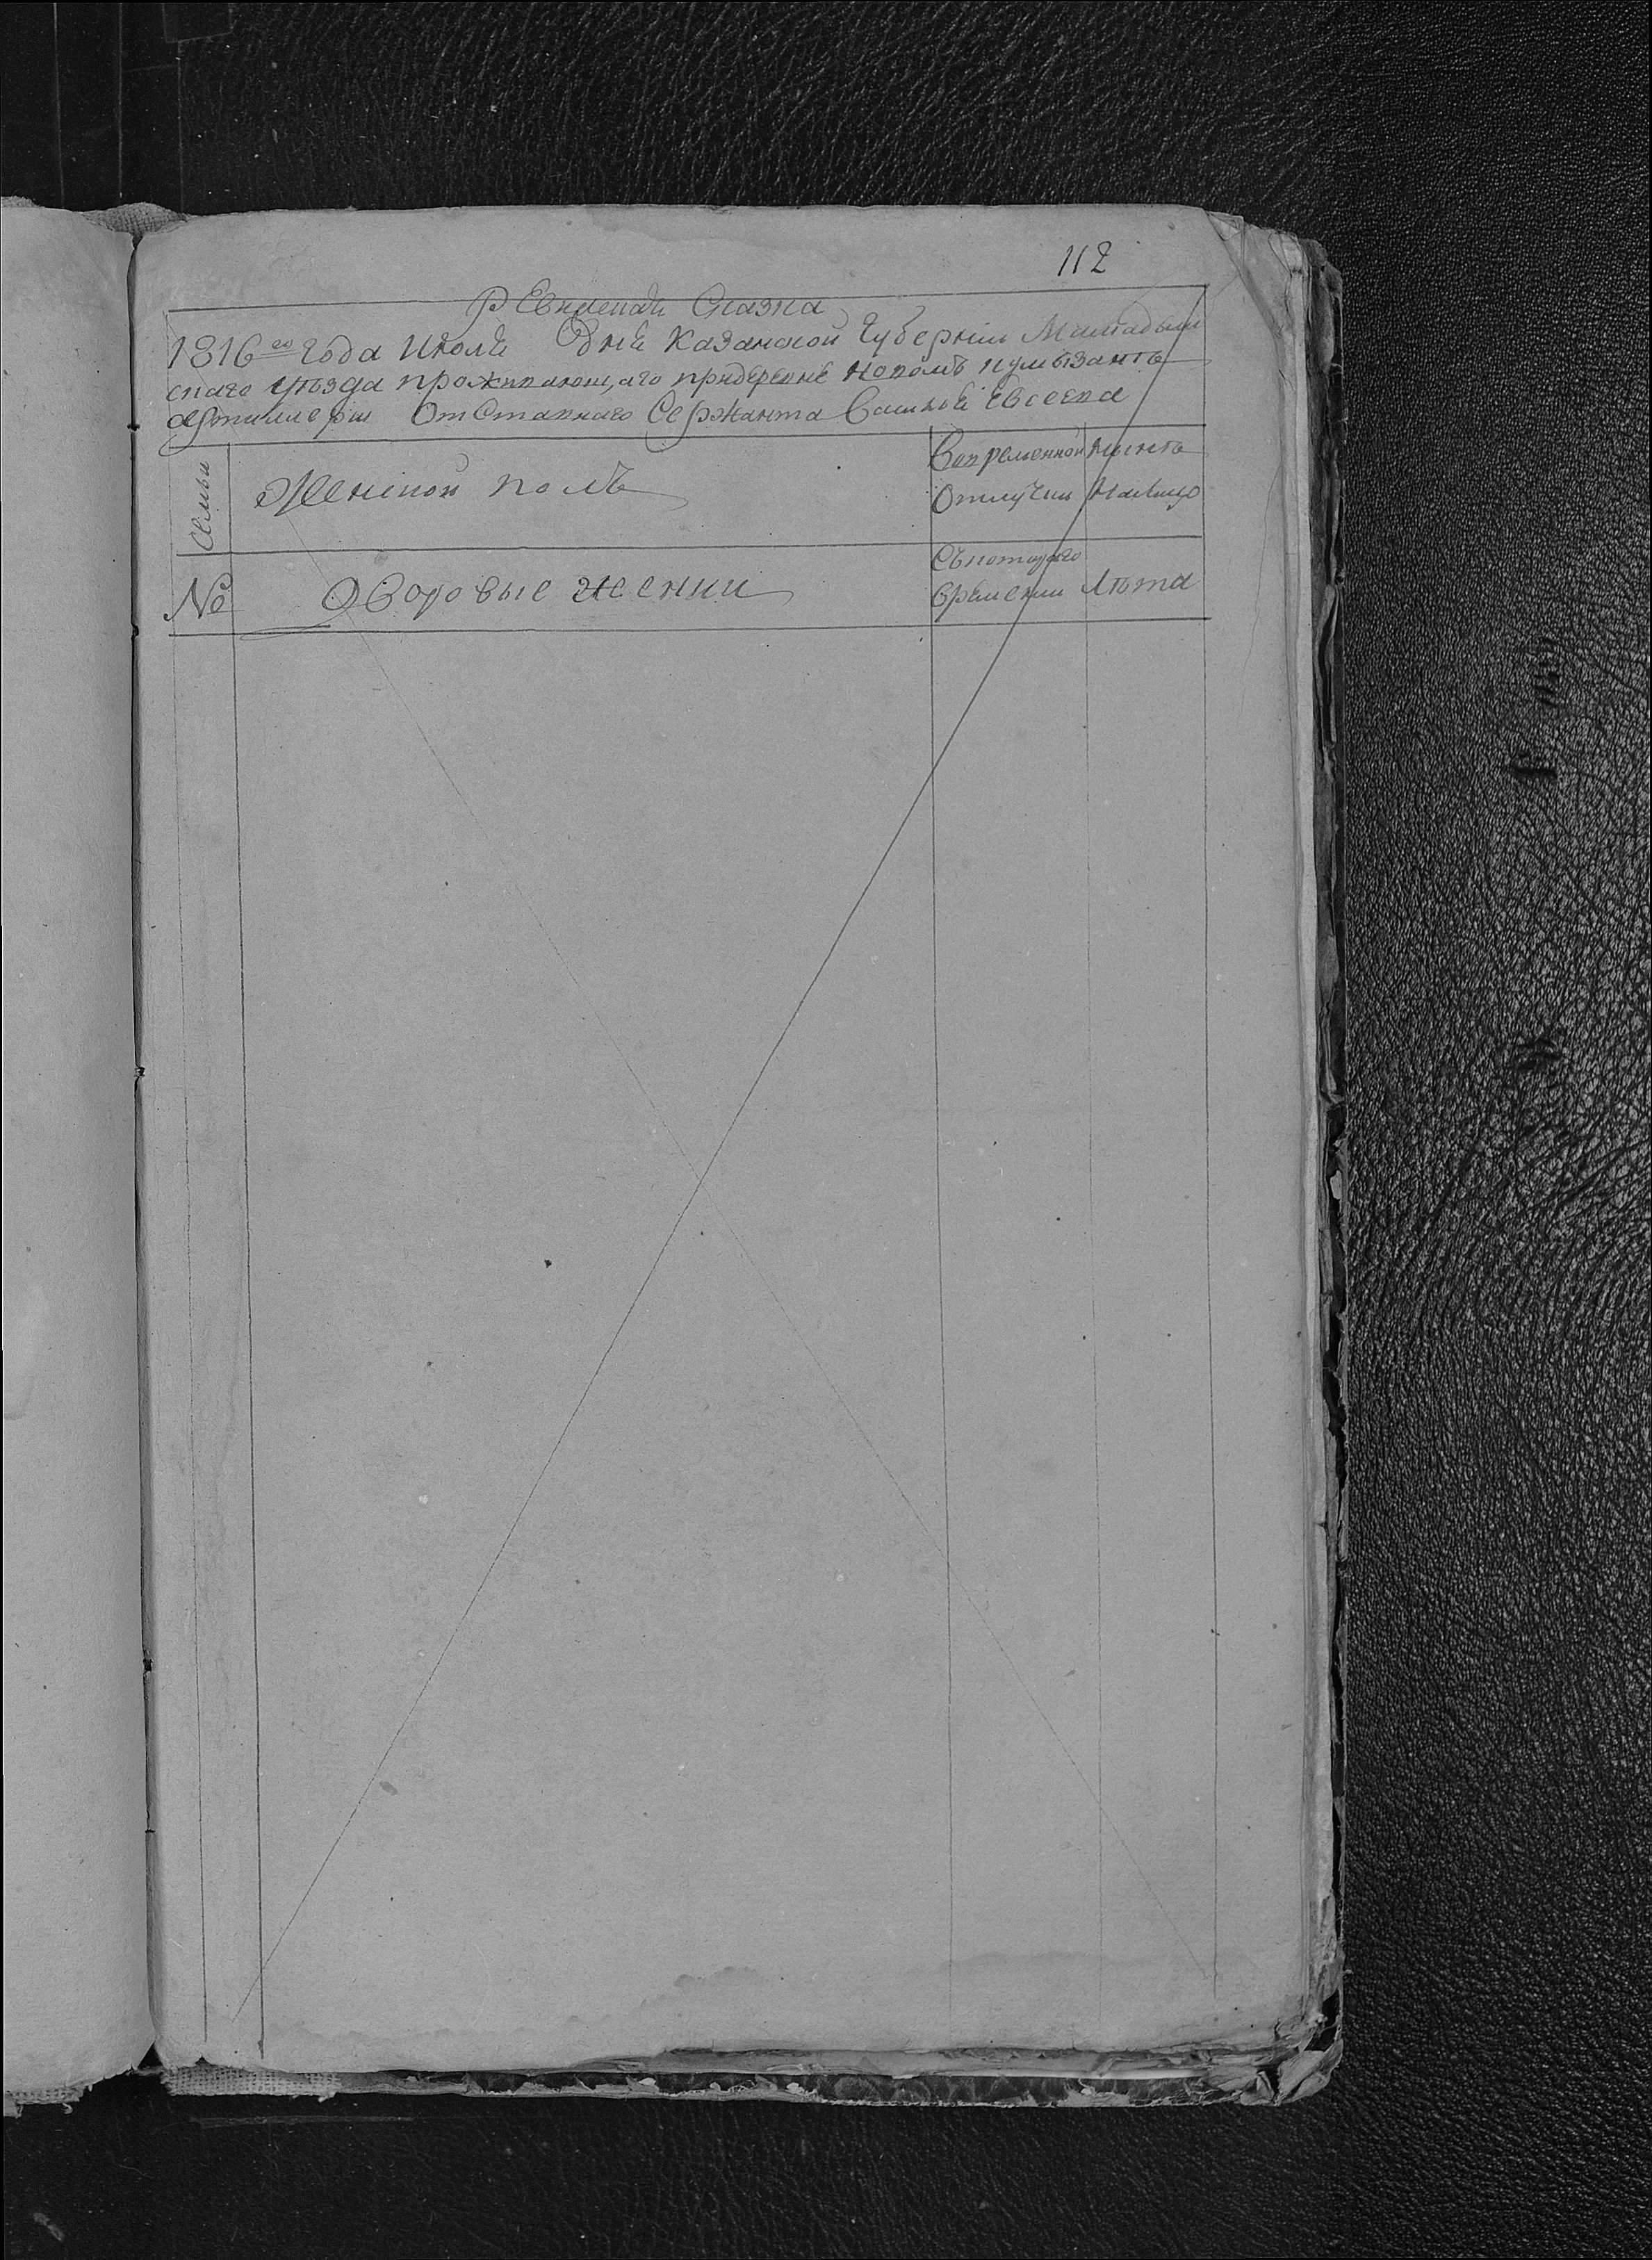 112
Ревизская Сказка
1816го года Июля Дня Казанской Губернии Мамадыш
скаго уѣзда проживающаго придеревне новомъ кумызанѣ
артиллерiи Отставнаго Сержанта Василья Евсеева
Семьи
Женской полъ
Вовременной
Отлучки
Нынѣ
Налицо
№
Дворовые женки
Съкотораго
времени
Лѣта